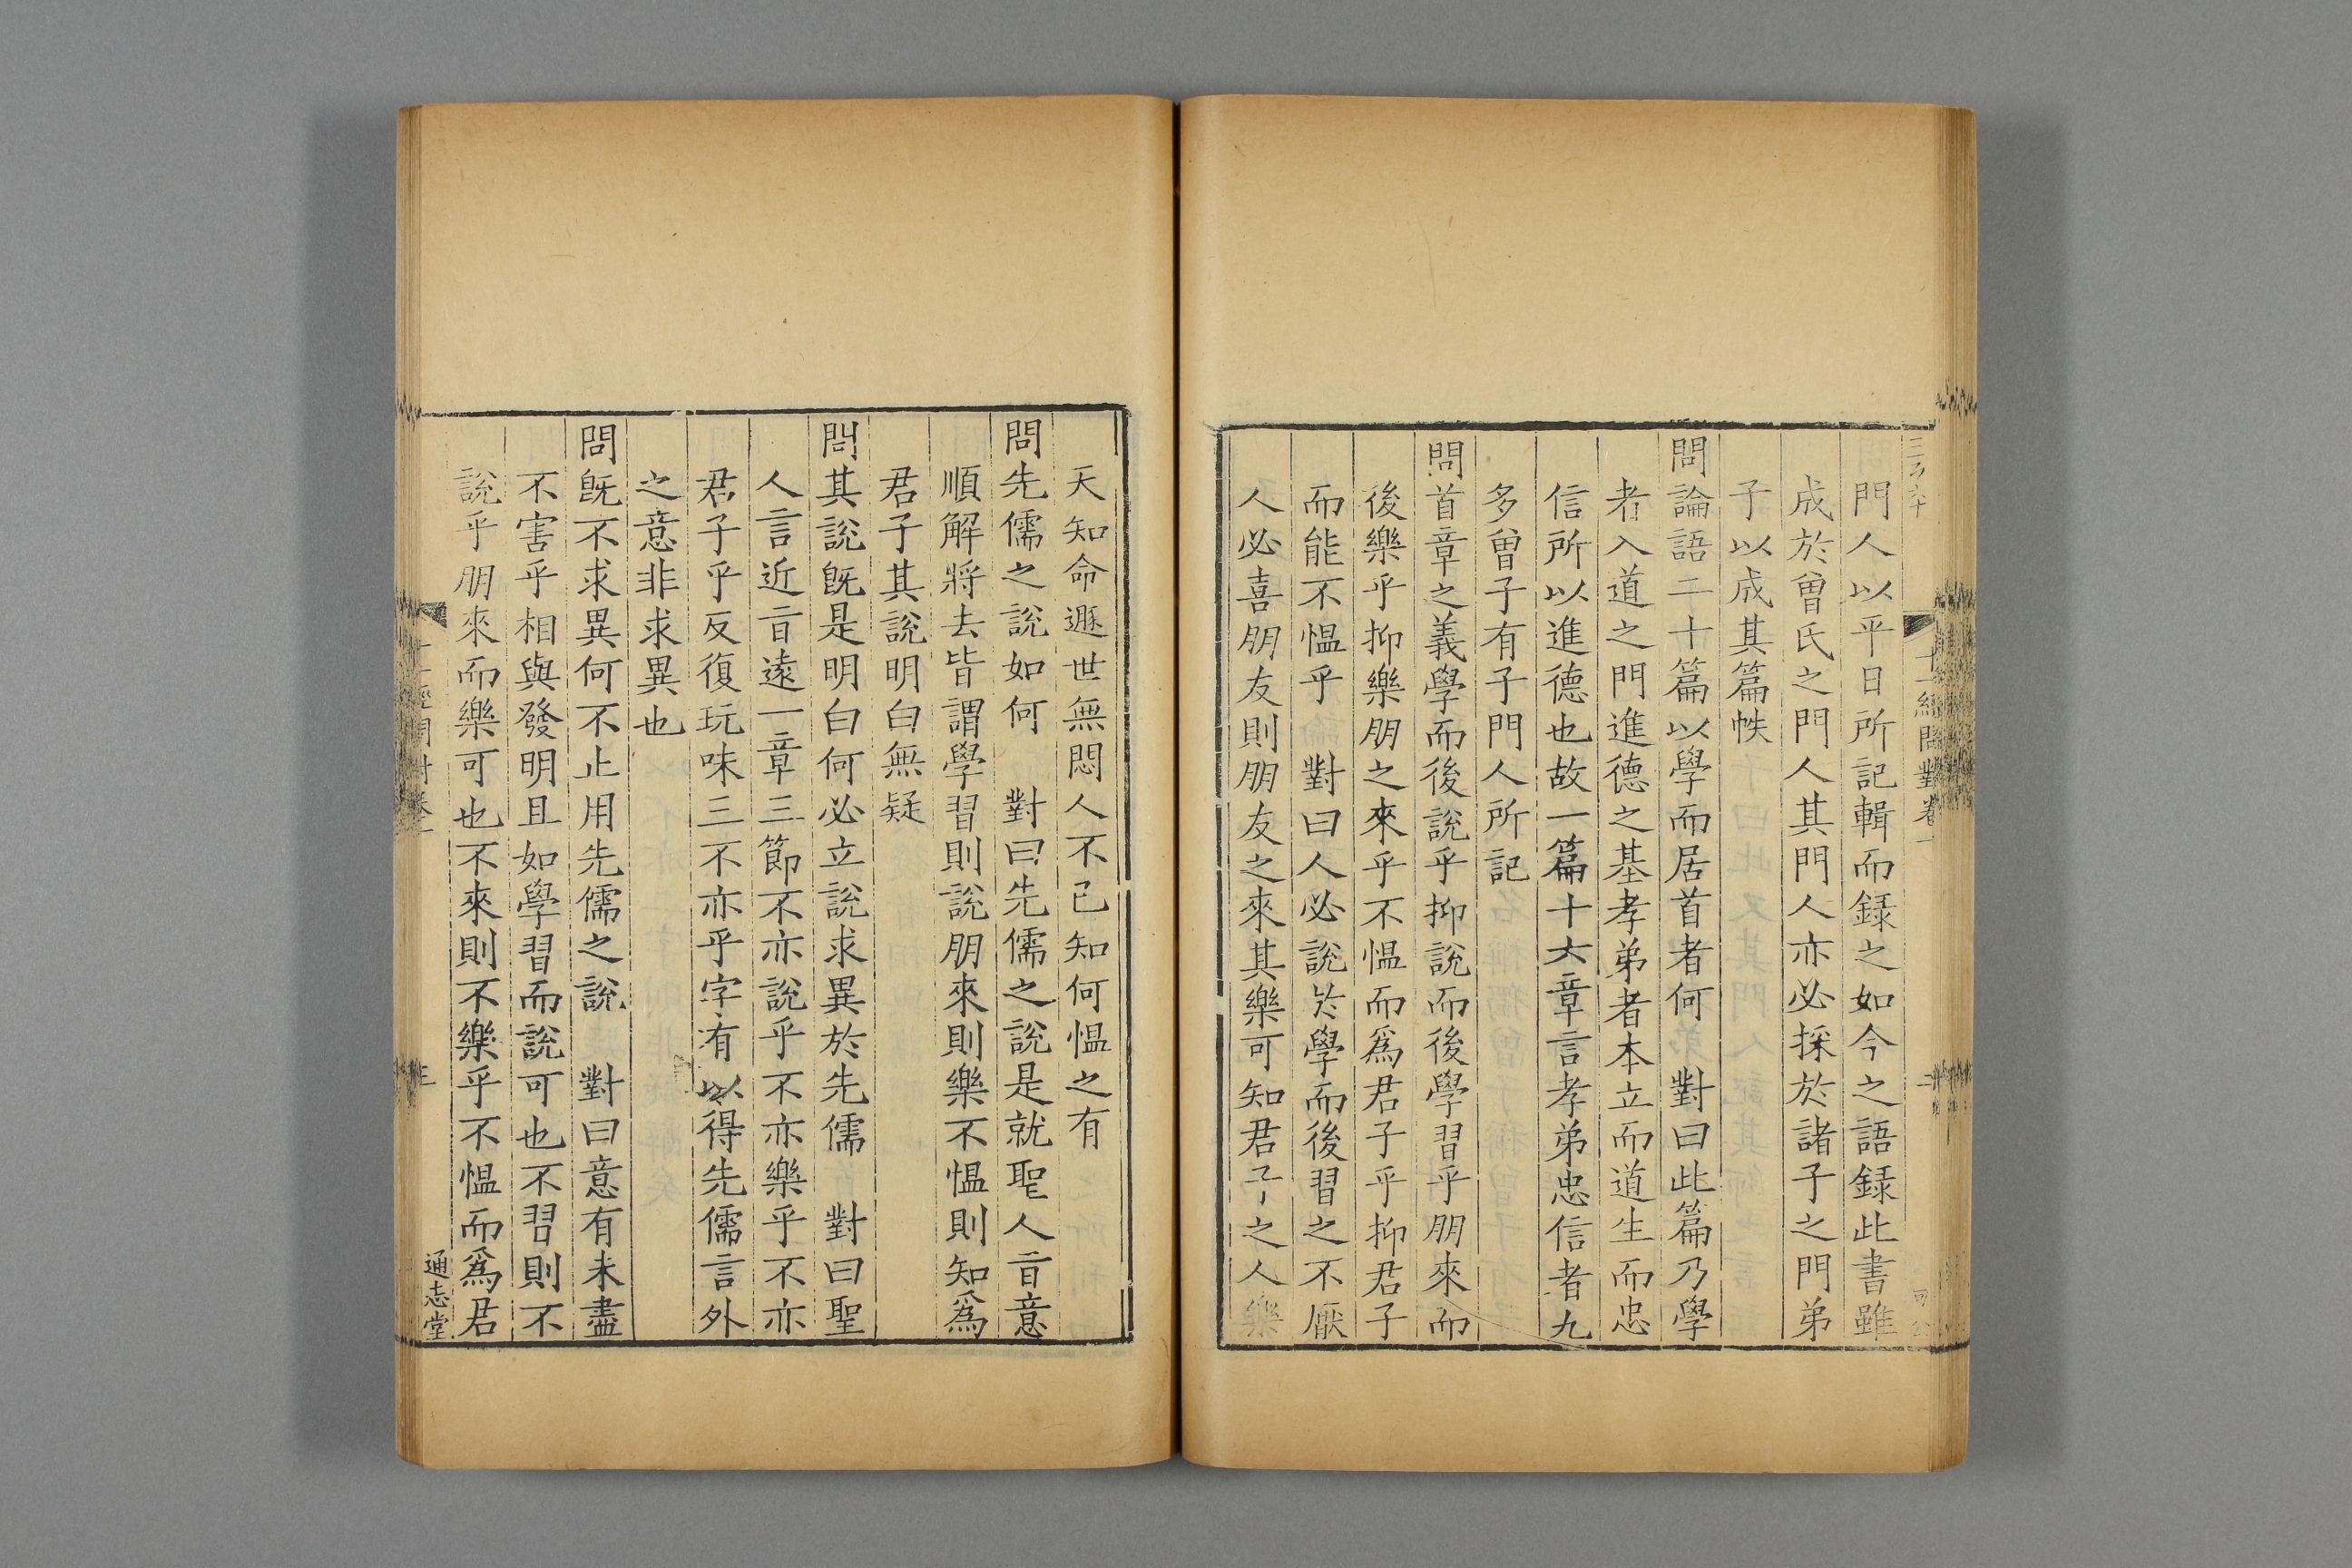 十一經問對卷一
二
門人以平日所記輯而録之如今之語録此書雖
成於曾氏之門人其門人亦必採於諸子之門弟
子以成其篇帙
問論語二十篇以學而居首者何　對曰此篇乃學
者入道之門進德之基孝弟者本立而道生而忠
信所以進德也故一篇十六章言孝弟忠信者九
多曾子有子門人所記
問首章之義學而後說乎抑說而後學習乎朋來而
後樂乎抑樂朋之來乎不愠而爲君子乎抑君子
而能不愠乎　對曰人必說於學而後習之不厭
人必喜朋友則朋友之來其樂可知君子之人樂
天知命遯世無悶人不已知何愠之有
問先儒之說如何　對曰先儒之說是就聖人言意
順解將去皆謂學習則說朋來則樂不愠則知爲
君子其說明白無疑
問其說旣是明白何必立說求異於先儒　對曰聖
人言近言遠一章三節不亦說乎不亦樂乎不亦
君子乎反復玩味三不亦乎字有以得先儒言外
之意非求異也
問旣不求異何不止用先儒之說　對曰意有未盡
不害乎相與發明且如學習而說可也不習則不
說乎朋來而樂可也不來則不樂乎不愠而爲君
十一經問對卷一
三
通志堂